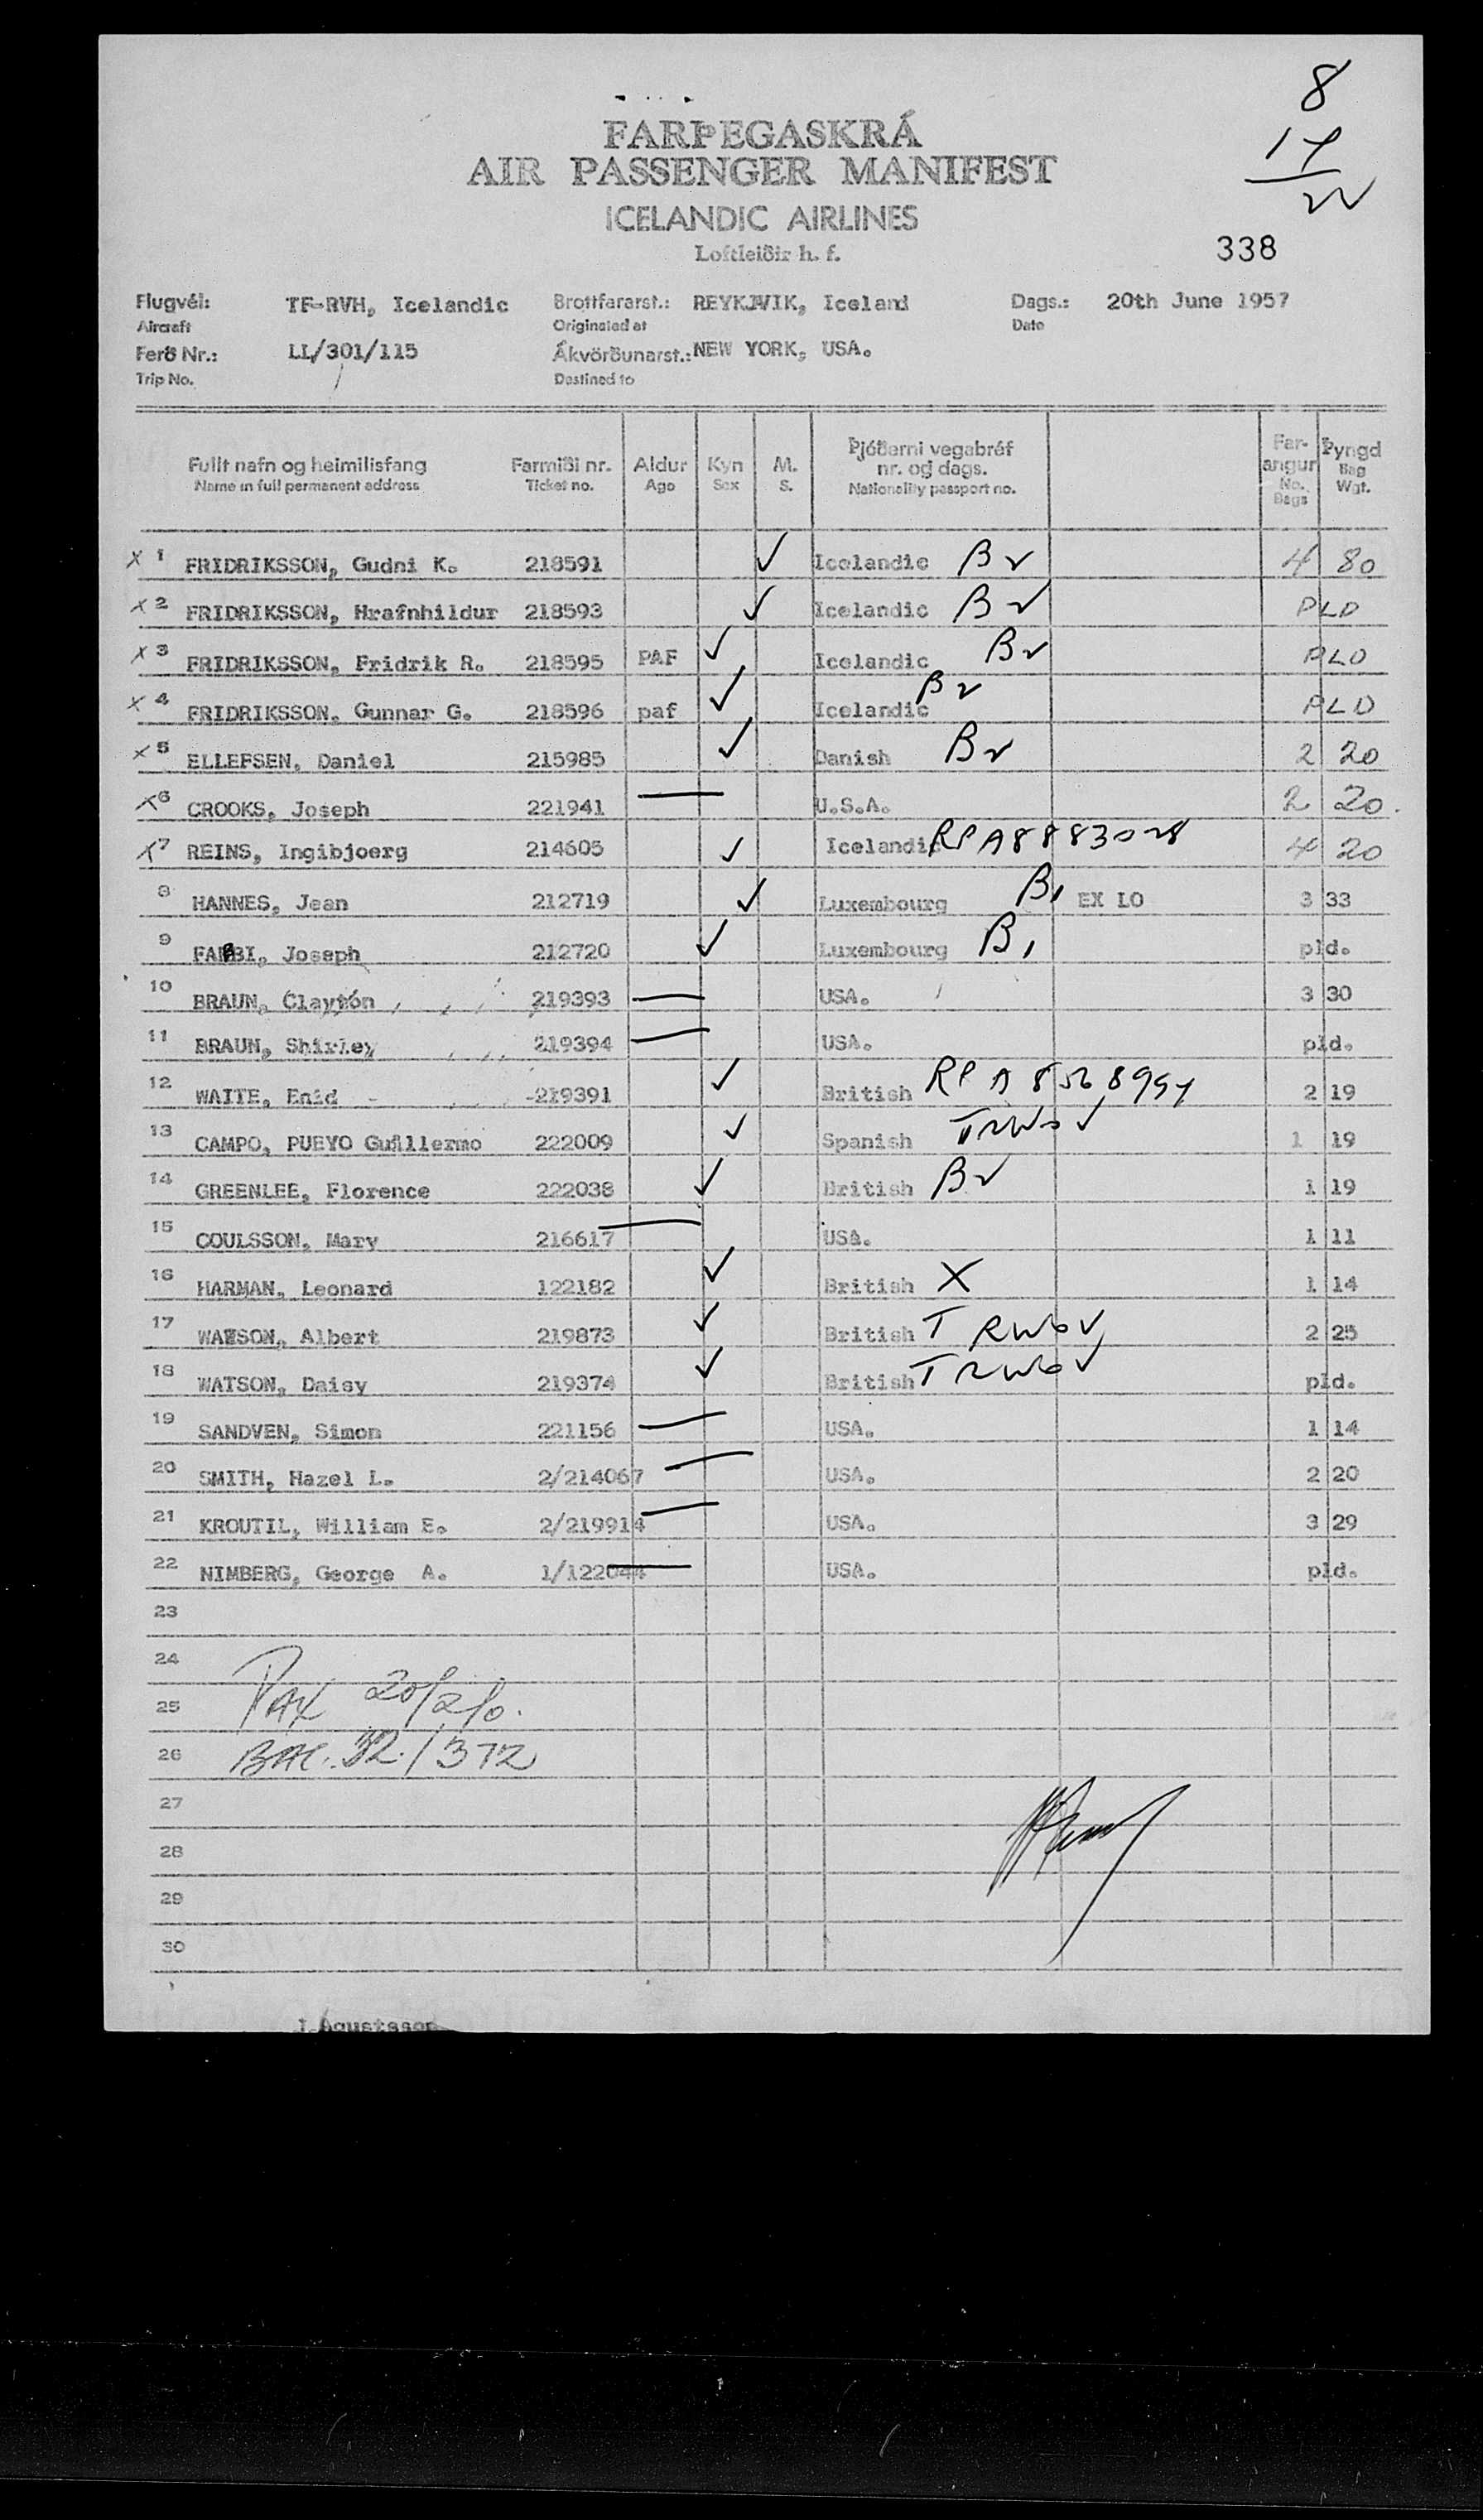 8
14
22
FARÞEGASKRÁ
AIR PASSENGER MANIFEST
ICELANDIC AIRLINES
Loftleiðir h. f.
338
Flugvél: TF-RVH, Icelandic Brottfararst.: REYKJVIK, Iceland Dags.: 20th June 1957
Aircraft Originated at Date
Ferð Nr.: LL/301/115 Ákvörðunarst.: NEW YORK, USA.
Trip No. Destined to
Fullt nafn og heimilisfang Farmiði nr. Aldur Kyn M. Þjóðerni vegabréf nr. og dags. Far-angur Þyngd
Name in full permanent address Ticket no. Age Sex S. Nationality passport no. No. Bags Bag Wgt.
X 1 FRIDRIKSSON, Gudni K. 218591 ✓ Icelandic B2 4 80
X 2 FRIDRIKSSON, Hrafnhildur 218593 ✓ Icelandic B2 PLD
X 3 FRIDRIKSSON, Fridrik R. 218595 PAF ✓ Icelandic B2 PLD
X 4 FRIDRIKSSON, Gunnar G. 218596 paf ✓ Icelandic B2 PLD
X 5 ELLEFSEN, Daniel 215985 ✓ Danish B2 2 20
X 6 CROOKS, Joseph 221941 — U.S.A. 2 20.
X 7 REINS, Ingibjoerg 214605 ✓ Icelandic RPA8883028 4 20
8 HANNES, Jean 212719 ✓ Luxembourg B1 EX LO 3 33
9 FABBI, Joseph 212720 ✓ Luxembourg B1 pld.
10 BRAUN, Clayton 219393 — USA. 3 30
11 BRAUN, Shirley 219394 — USA. pld.
12 WAITE, Enid 219391 ✓ British RPA 2 19
13 CAMPO, PUEYO Guillermo 222009 ✓ Spanish TRWOV 1 19
14 GREENLEE, Florence 222038 ✓ British B2 1 19
15 COULSSON, Mary 216617 — USA. 1 11
16 HARMAN, Leonard 122182 ✓ British X 1 14
17 WATSON, Albert 219873 ✓ British TRWOV 2 25
18 WATSON, Daisy 219374 ✓ British TRWOV pld.
19 SANDVEN, Simon 221156 — USA. 1 14
20 SMITH, Hazel L. 2/214067 — USA. 2 20
21 KROUTIL, William E. 2/219914 — USA. 3 29
22 NIMBERG, George A. 1/122044 — USA. pld.
23
24
25 PAX 20/2/0.
26 BAG. 32./372
27
28
29
30
J.Agustsson